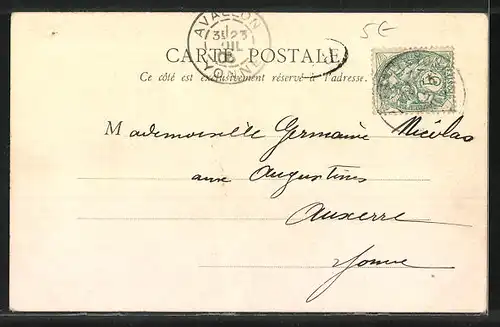 5€
AVALLON
3E 23
JUIL
03
YONNE
CARTE POSTALE
Ce côté est exclusivement réservé à l'adresse.
Mademoiselle Germaine Nicolas
aux Augustines
Auxerre
Yonne